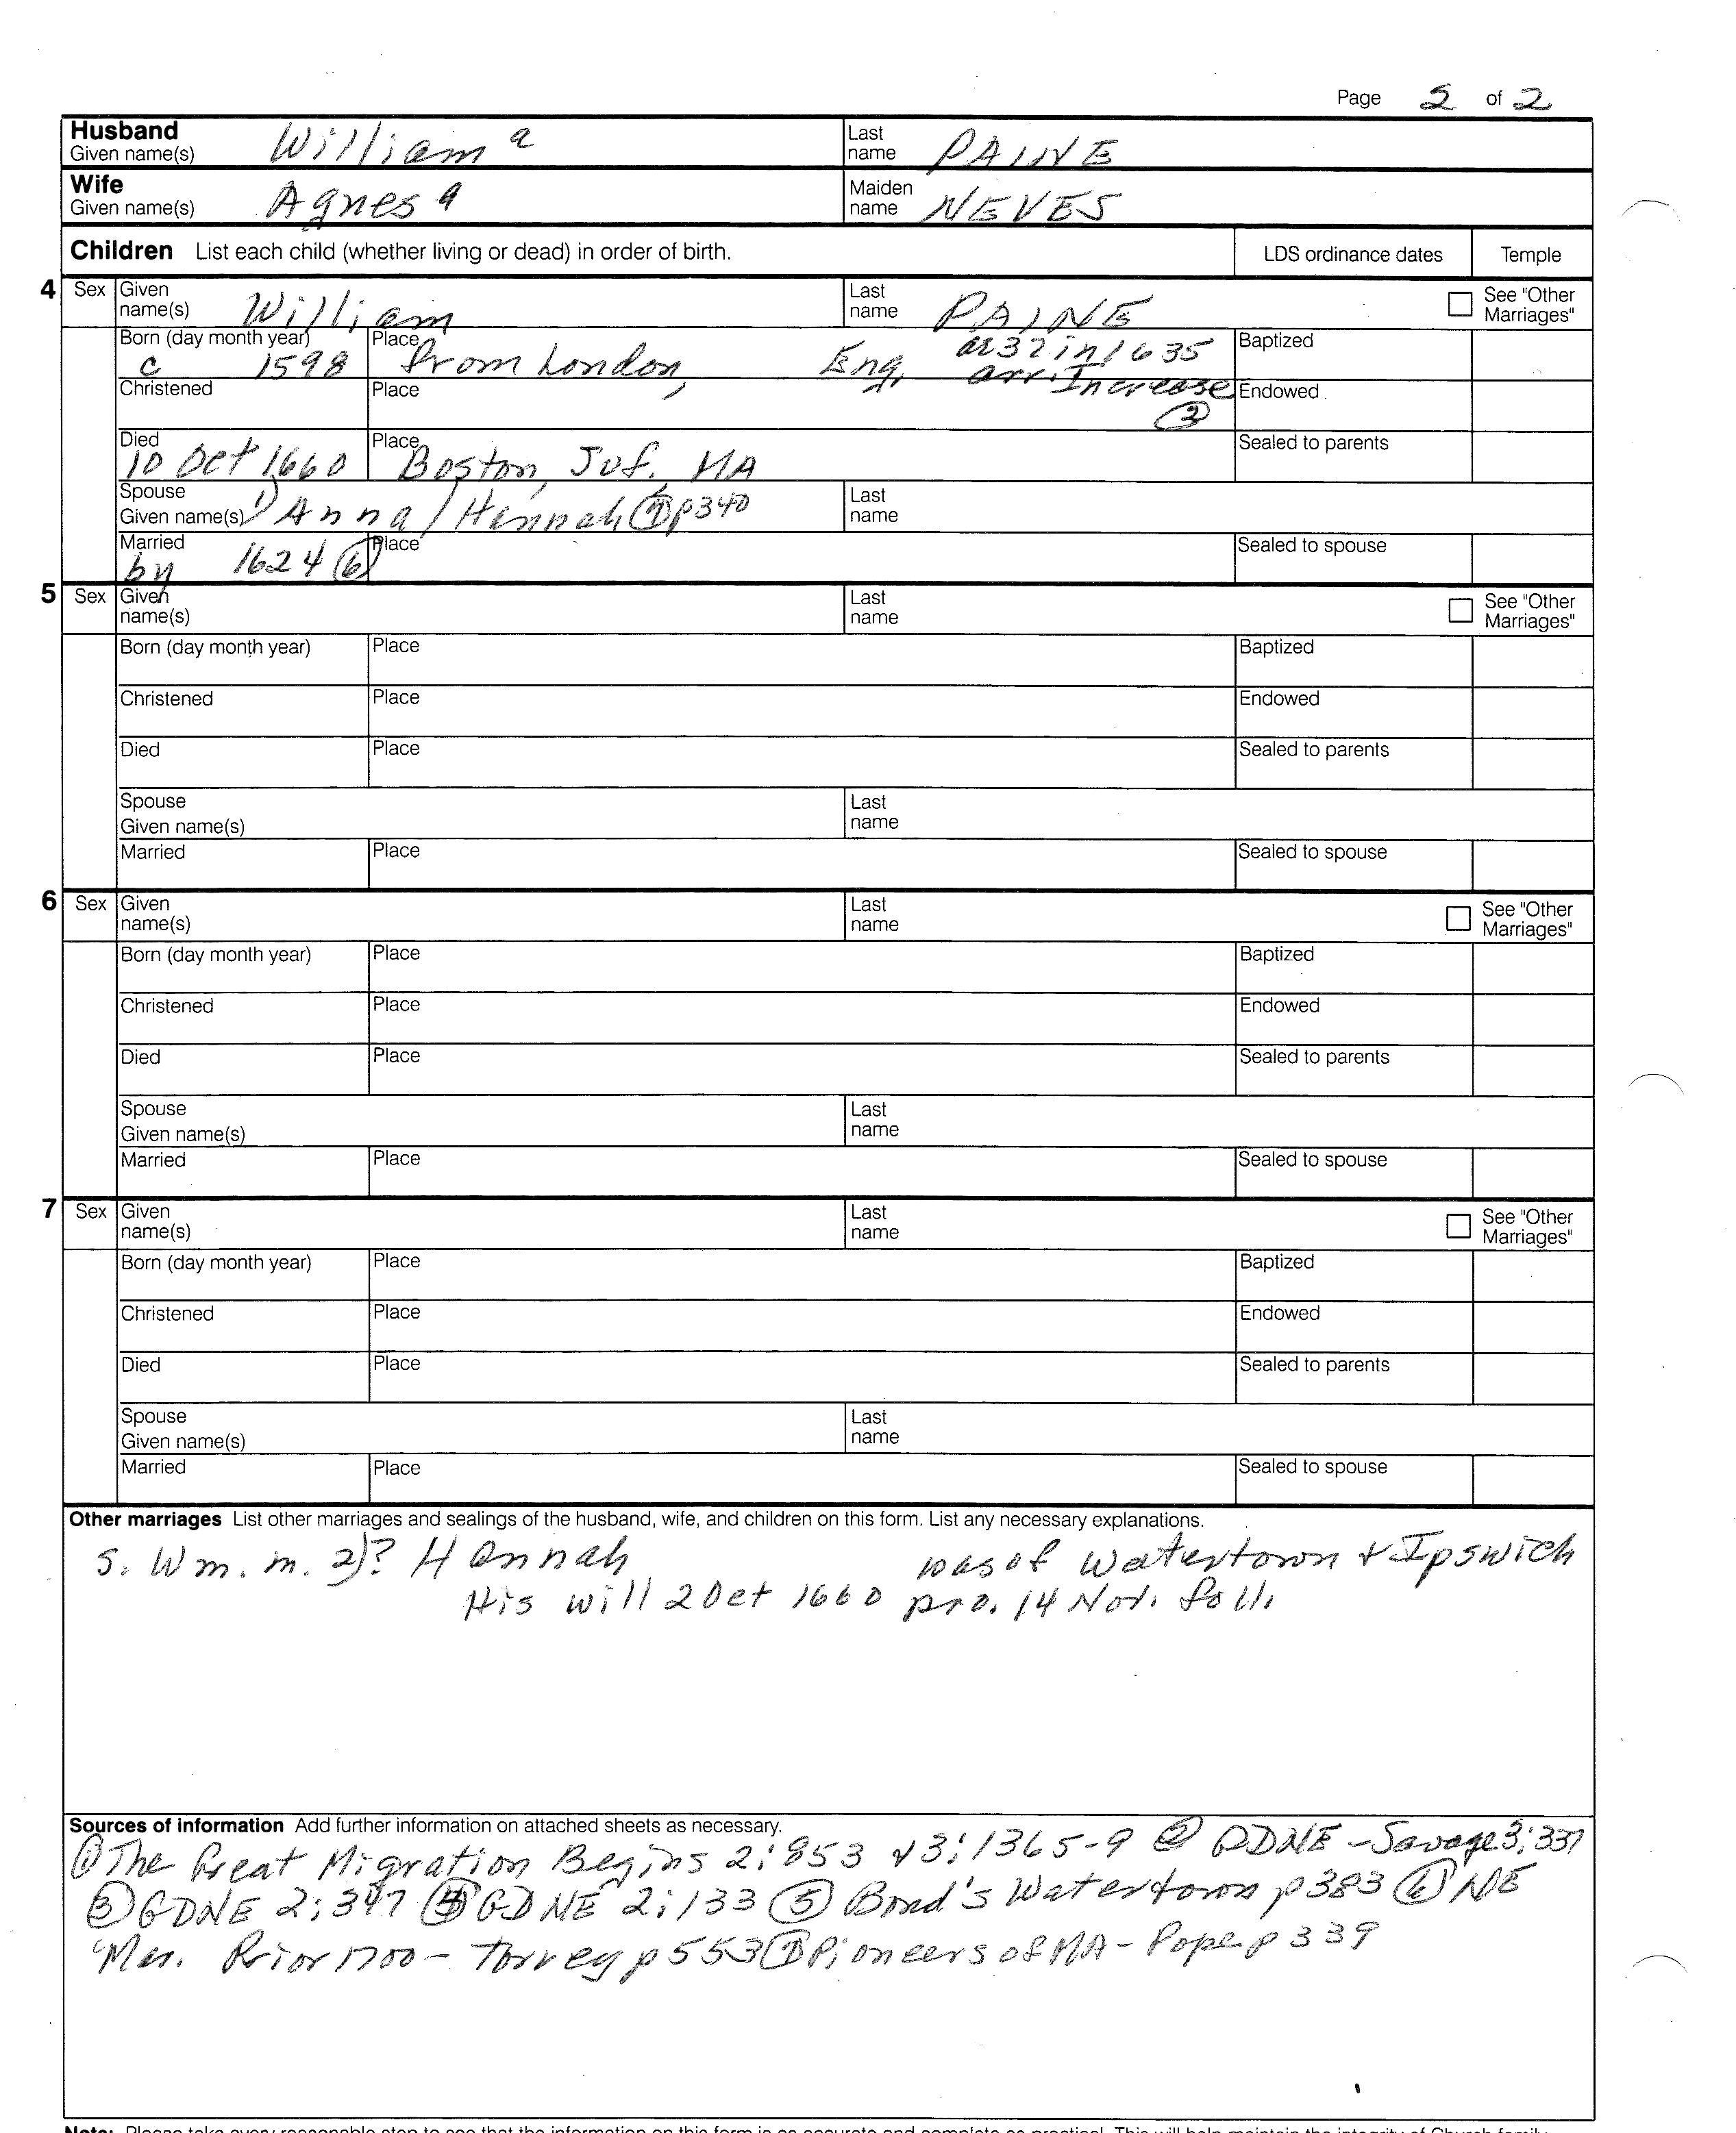 Page 2 of 2
Husband Given name(s) William a Last name PAINE
Wife Given name(s) Agnes a Maiden name NEVES
Children List each child (whether living or dead) in order of birth. LDS ordinance dates Temple
4 Sex Given name(s) William Last name PAINE See "Other Marriages"
Born (day month year) c 1598 Place from London, Eng. ae 37 in 1635 Baptized
arr. Increase
Christened Place Endowed
Died 10 Oct 1660 Place Boston, Suf. MA Sealed to parents
Spouse Given name(s) 1) Anna / Hannah ⑦ p340 Last name
Married by 1624 ⑥ Place Sealed to spouse
5 Sex Given name(s) Last name See "Other Marriages"
Born (day month year) Place Baptized
Christened Place Endowed
Died Place Sealed to parents
Spouse Given name(s) Last name
Married Place Sealed to spouse
6 Sex Given name(s) Last name See "Other Marriages"
Born (day month year) Place Baptized
Christened Place Endowed
Died Place Sealed to parents
Spouse Given name(s) Last name
Married Place Sealed to spouse
7 Sex Given name(s) Last name See "Other Marriages"
Born (day month year) Place Baptized
Christened Place Endowed
Died Place Sealed to parents
Spouse Given name(s) Last name
Married Place Sealed to spouse
Other marriages List other marriages and sealings of the husband, wife, and children on this form. List any necessary explanations.
5. Wm. m. 2)? Hannah was of Watertown & Ipswich
His will 2 Oct 1660 pro. 14 Nov. foll.
Sources of information Add further information on attached sheets as necessary.
① The Great Migration Begins 2:853 & 3:1365-9 ② GDNE - Savage 3:337
③ GDNE 2:347 ④ GDNE 2:133 ⑤ Bond's Watertown p383 ⑥ NE
Mar. Prior 1700 - Torrey p553 ⑦ Pioneers of MA - Pope p 339